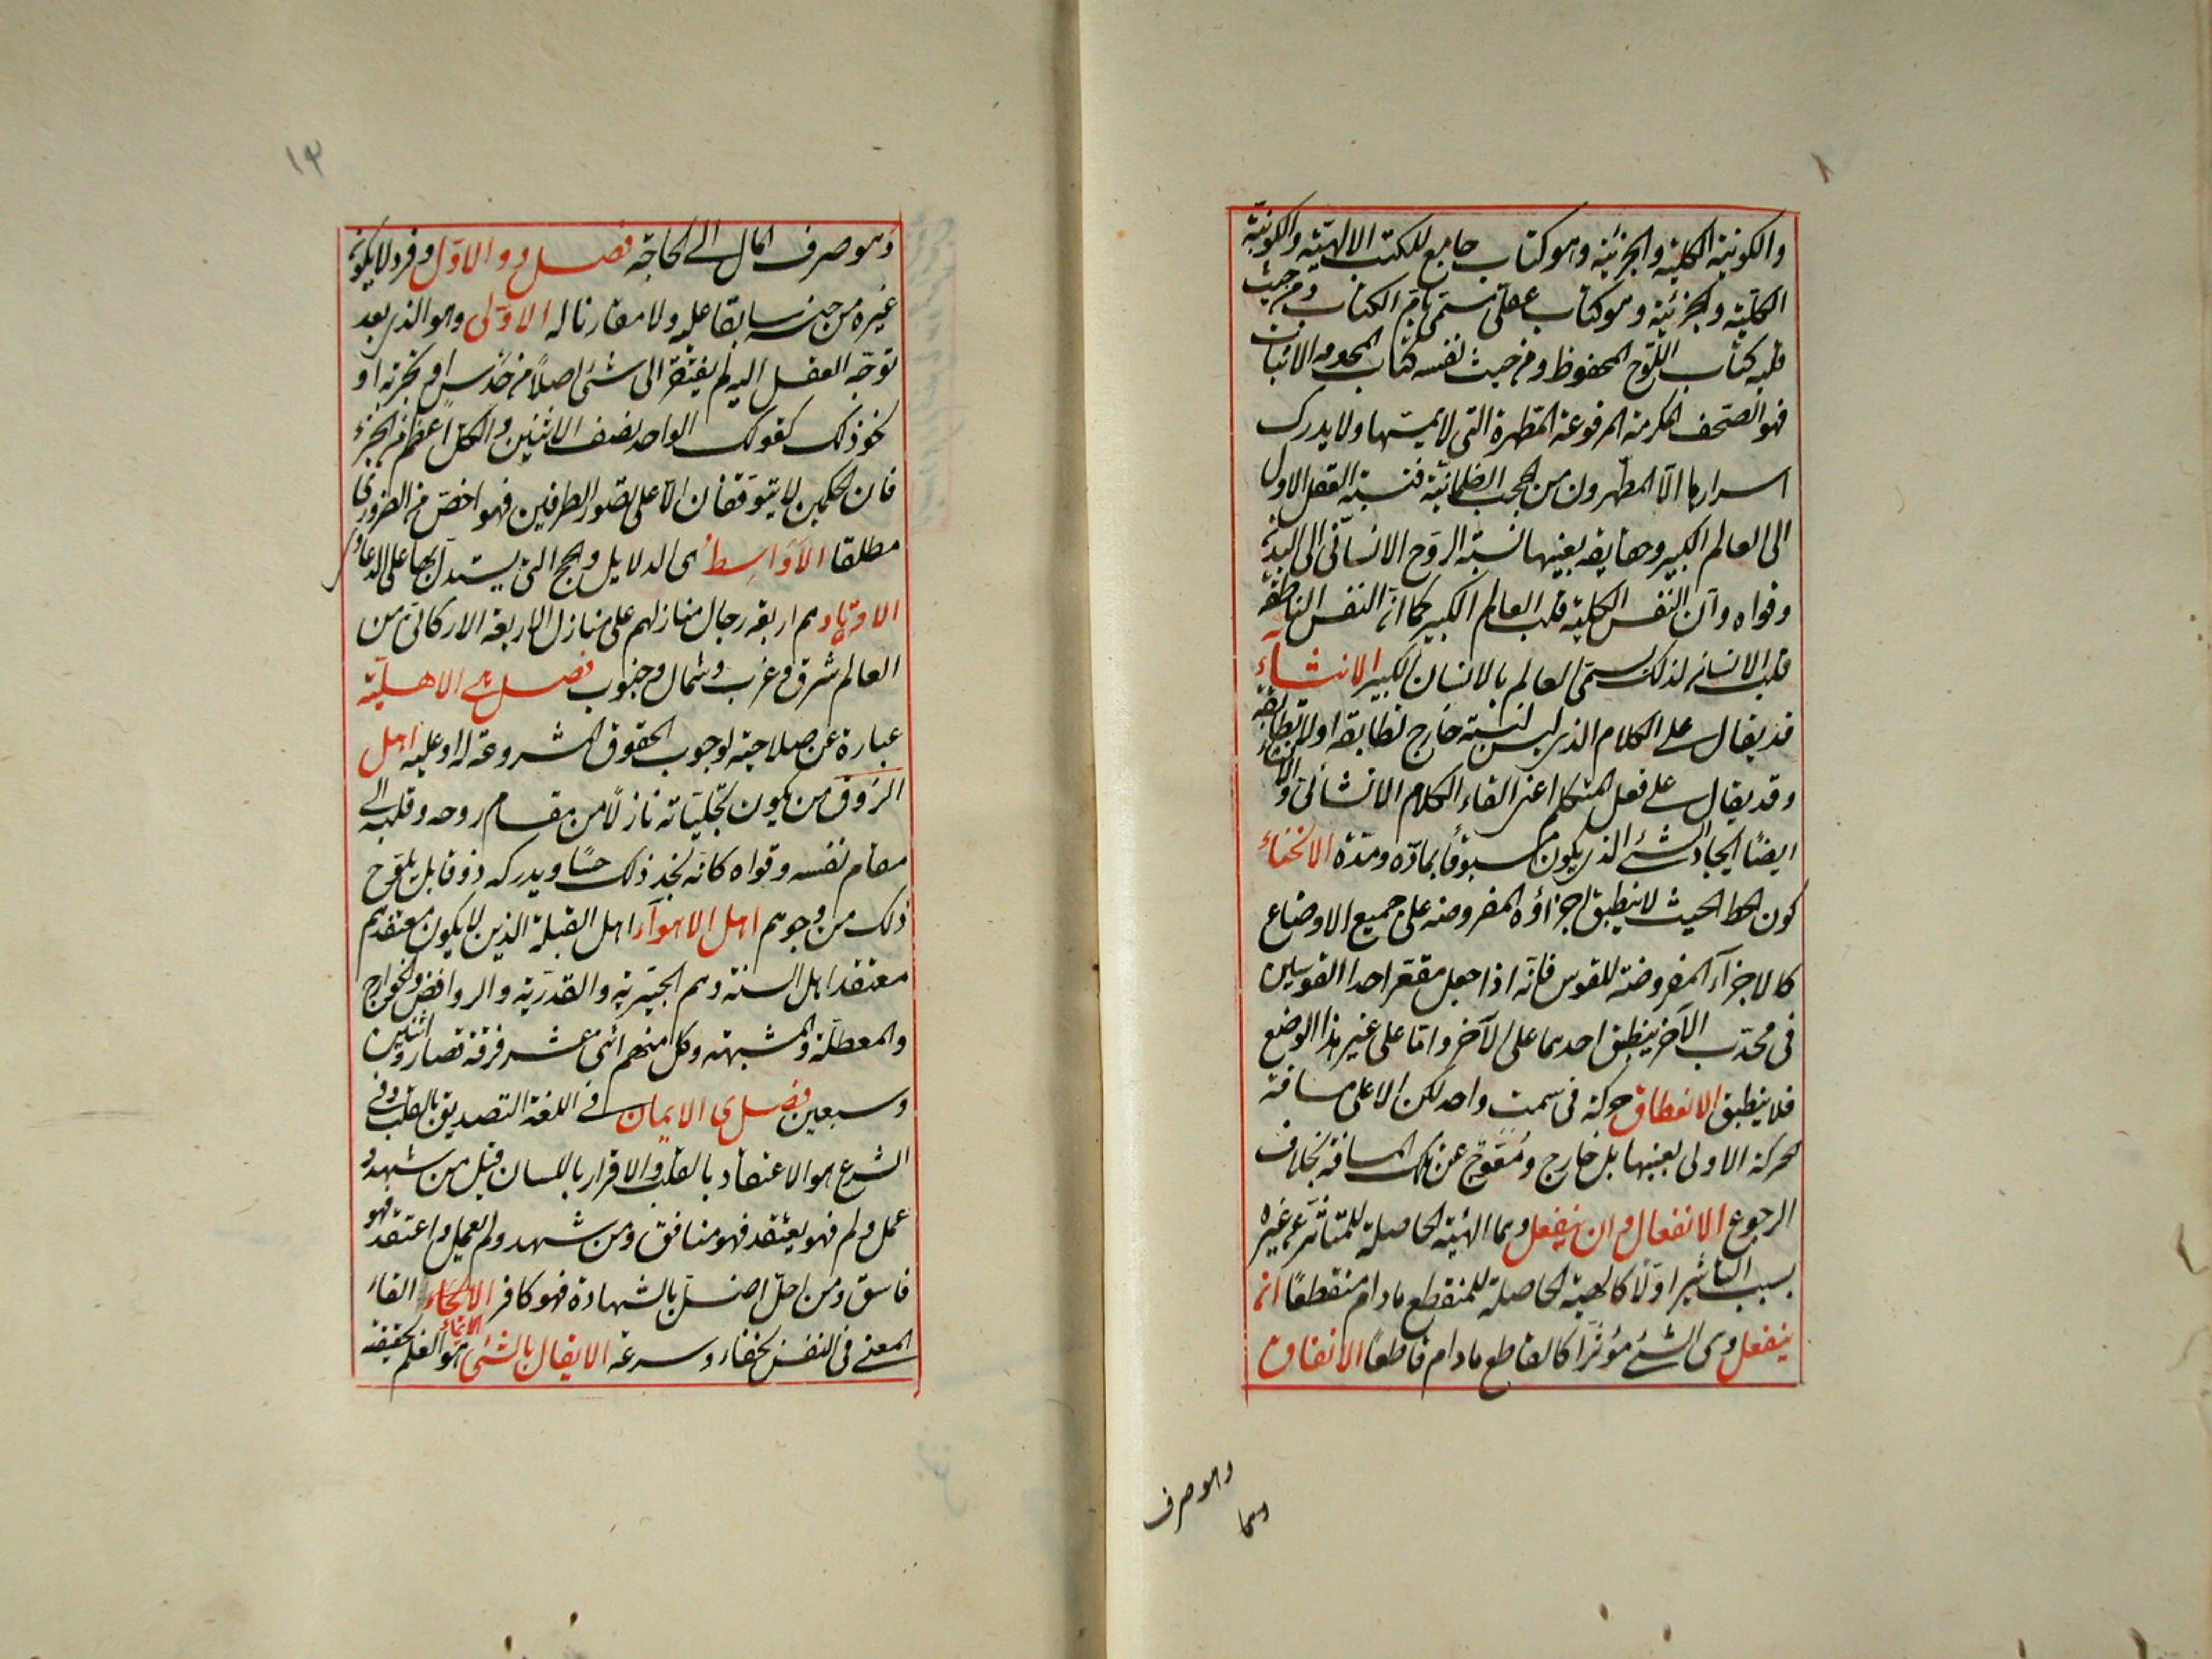 والكونية الكلية والجزئية وهو كتاب جامع للكتب الالهية والكونية
الكلية والجزئية وهو كتاب عقلى يسمى بام الكتاب ومن حيث
قلبه كتاب اللوح المحفوظ ومن حيث نفسه كتاب المحو والاثبات
فهو الصحف المكرمة المرفوعة المطهرة التى لا يمسها ولا يدرك
اسرارها الا المطهرون من الحجب الظلمانية فنسبة العقل الاول
الى العالم الكبير وحقايقه بعينها نسبة الروح الانسانى الى البدن
وقواه وان النفس الكلية قلب العالم الكبير كما ان النفس الناطقة
قلب الانسان لذلك يسمى العالم بالانسان الكبير الانشاء
قد يقال على الكلام الذى ليس لنسبته خارج تطابقه او لا تطابقه
وقد يقال على فعل المتكلم اعنى القاء الكلام الانشائى والانشاء
ايضا ايجاد الشئ الذى يكون مسبوقا بمادة ومدة الانحناء
كون الخط بحيث لا ينطبق اجزاؤه المفروضة على جميع الاوضاع
كالاجزاء المفروضة للقوس فانه اذا جعل مقعر احد القوسين
فى محدب الآخر ينطبق احدهما على الآخر واما على غير هذا الوضع
فلا ينطبق الانعطاف حركة فى سمت واحد لكن لا على مسافة
الحركة الاولى بعينها بل خارج ومعوج عن تلك المسافة بخلاف
الرجوع الانفعال وان ينفعل وهما الهيئة الحاصلة للمتاثر عن غيره
بسبب التاثير اولا كالهيئة الحاصلة للمنقطع مادام منقطعا ان
ينفعل وهى الشئ مؤثرا كالقاطع مادام قاطعا الانفاق
وهو صرف
وهو صرف المال الى الحاجة فصل و الاول فرد لا يكون
غيره من جنسه سابقا عليه ولا مقارنا له الاولى وهو الذى بعد
توجه العقل اليه لم يفتقر الى شئ اصلا من حدس او تجربة او
نحو ذلك كقولك الواحد نصف الاثنين والكل اعظم من الجزء
فان الحكمين لا يتوقفان الا على تصور الطرفين فهو اخص من الضرورى
مطلقا الاواسط هى الدلايل والحجج التى يستدل بها على الدعاوى
الاوتاد هم اربعة رجال منازلهم على منازل الاربعة الاركان من
العالم شرق وغرب وشمال وجنوب فصل ه الاهلية
عبارة عن صلاحية لوجوب الحقوق المشروعة له او عليه اهل
الذوق من يكون تجلياته نازلا من مقام روحه وقلبه الى
مقام نفسه وقواه كانه يجد ذلك حسا ويدركه ذوقا بل يلوح
ذلك من وجوههم اهل الاهواء اهل القبلة الذين لا يكون معتقدهم
معتقد اهل السنة وهم الجبرية والقدرية والروافض والخوارج
والمعطلة والمشبهة وكل منهم اثنى عشر فرقة فصاروا اثنين
وسبعين فصل ى الايمان فى اللغة التصديق بالقلب وفى
الشرع هو الاعتقاد بالقلب والاقرار باللسان قيل من شهد و
عمل ولم فهو يعتقد فهو منافق ومن شهد ولم يعمل واعتقد فهو
فاسق ومن اخل بالشهادة فهو كافر الايحاء القاء
المعنى فى النفس بخفاء وسرعة الايقان بالشئ هو العلم بحقيقته